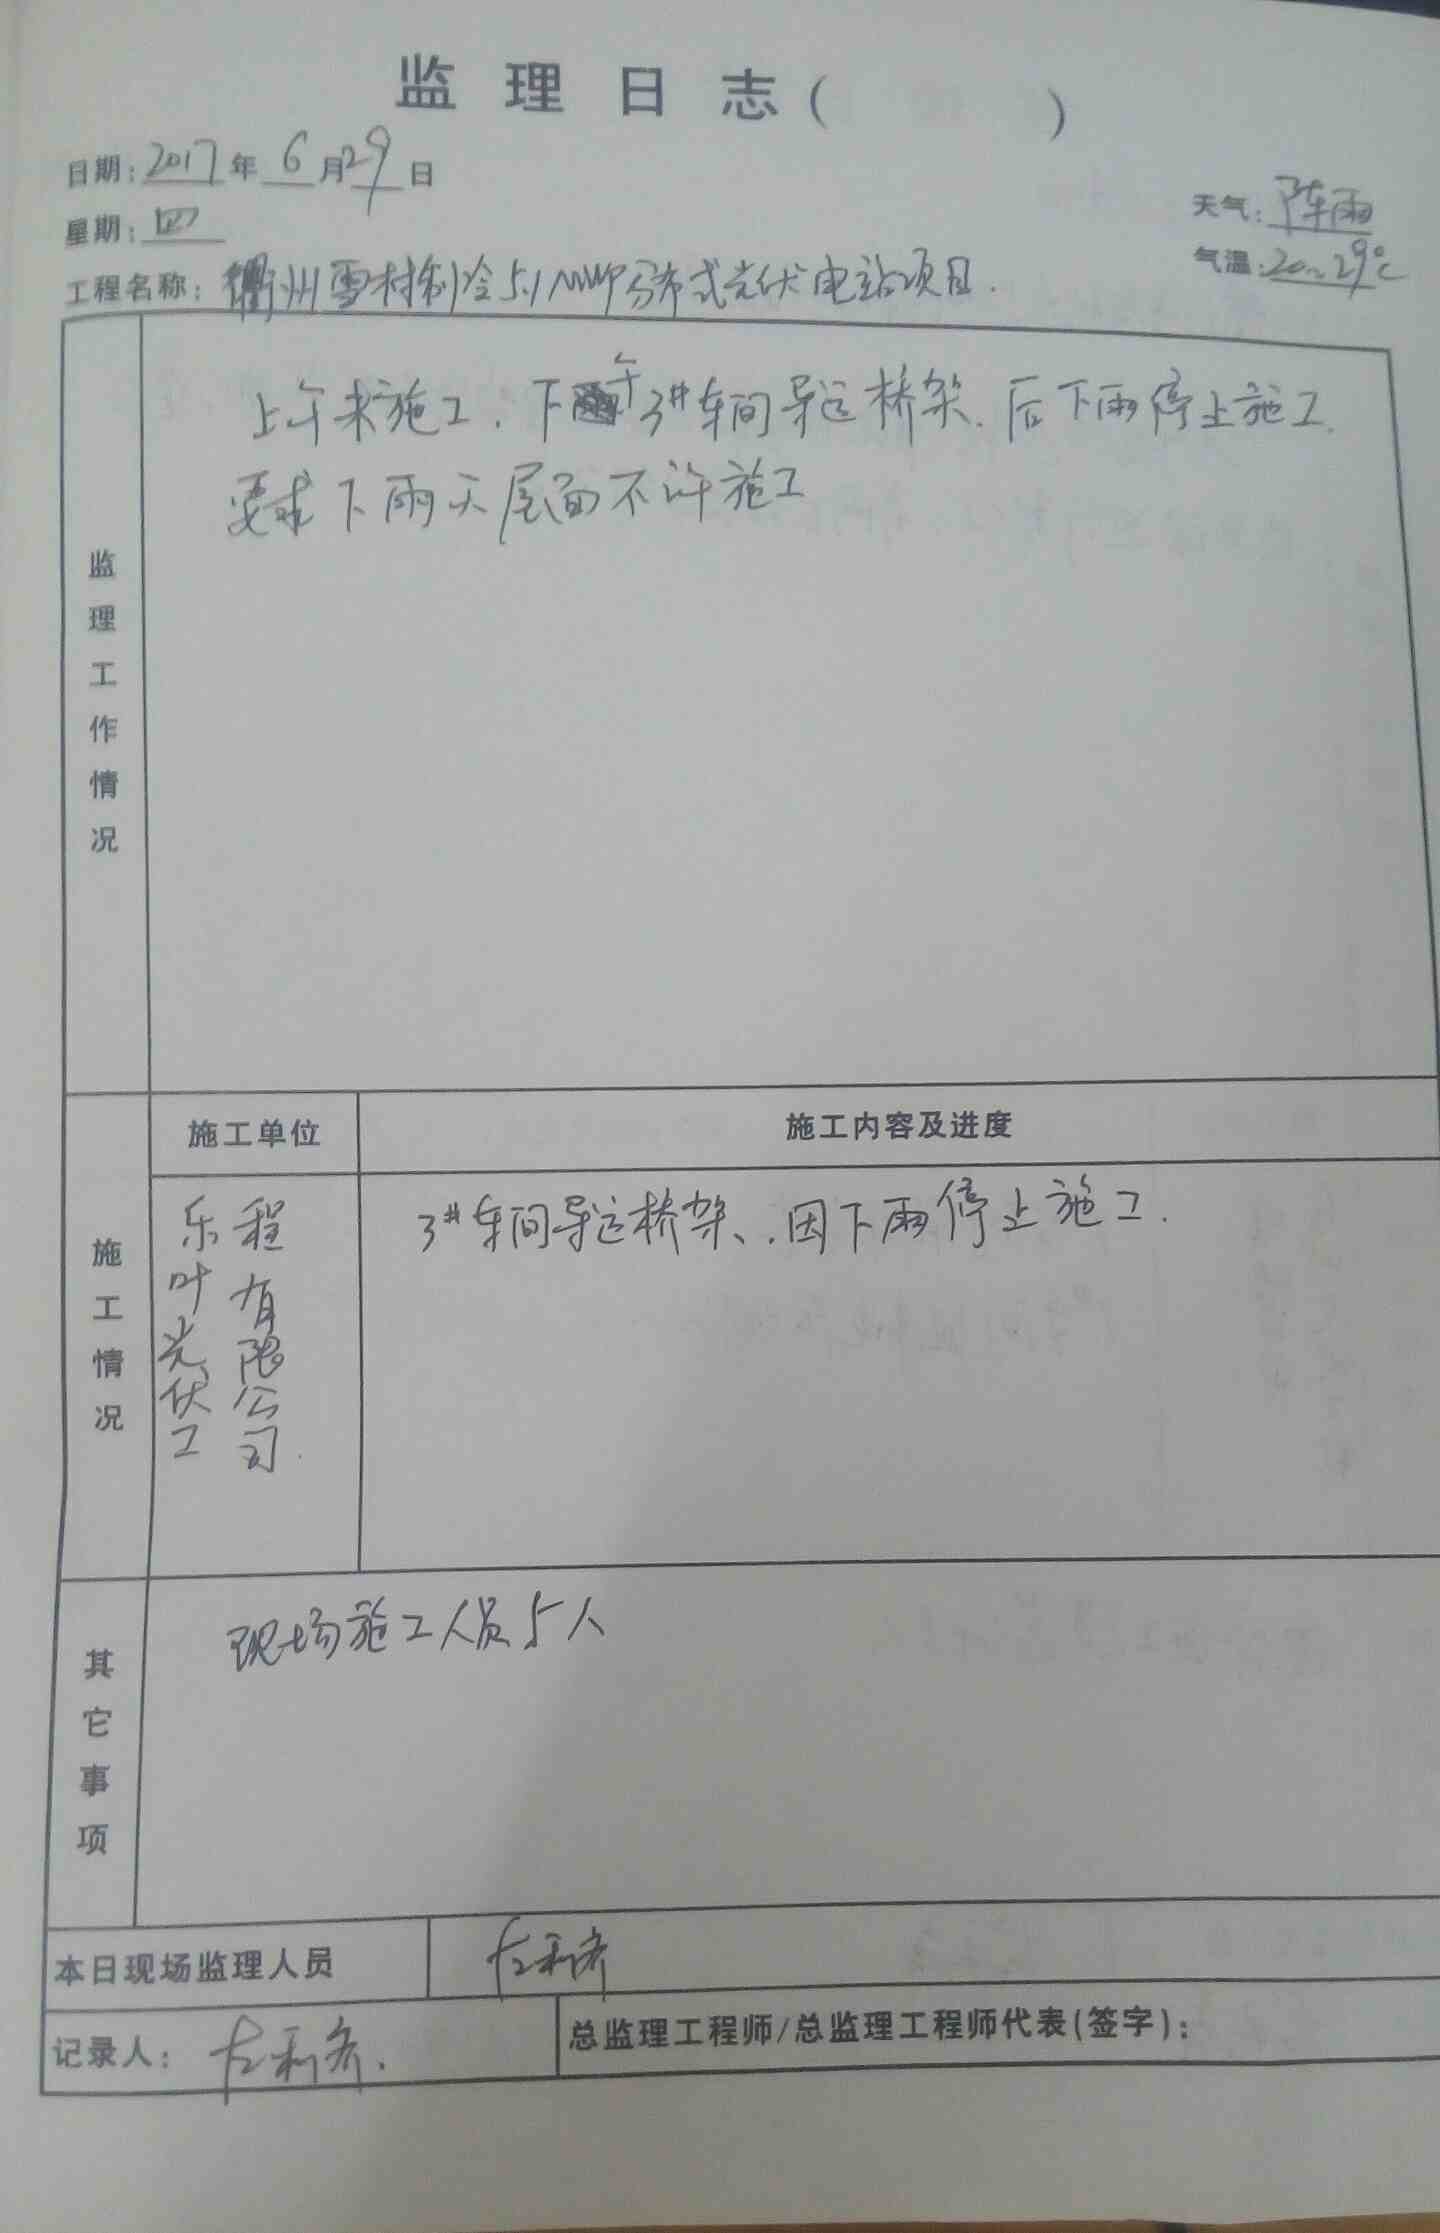 监理日志（ ）
日期：2017年6月29日
星期：四
天气：阵雨
气温：20~29℃
工程名称：衢州雪村制冷5.1MWP分布式光伏电站项目.
监理工作情况
上午未施工.下午3#车间导运桥架.后下雨停止施工.
要求下雨天屋面不许施工
施工情况
施工单位
施工内容及进度
乐叶光伏工
程有限公司.
3#车间导运桥架、.因下雨停止施工.
其它事项
现场施工人员5人
本日现场监理人员
记录人：
总监理工程师/总监理工程师代表(签字)：